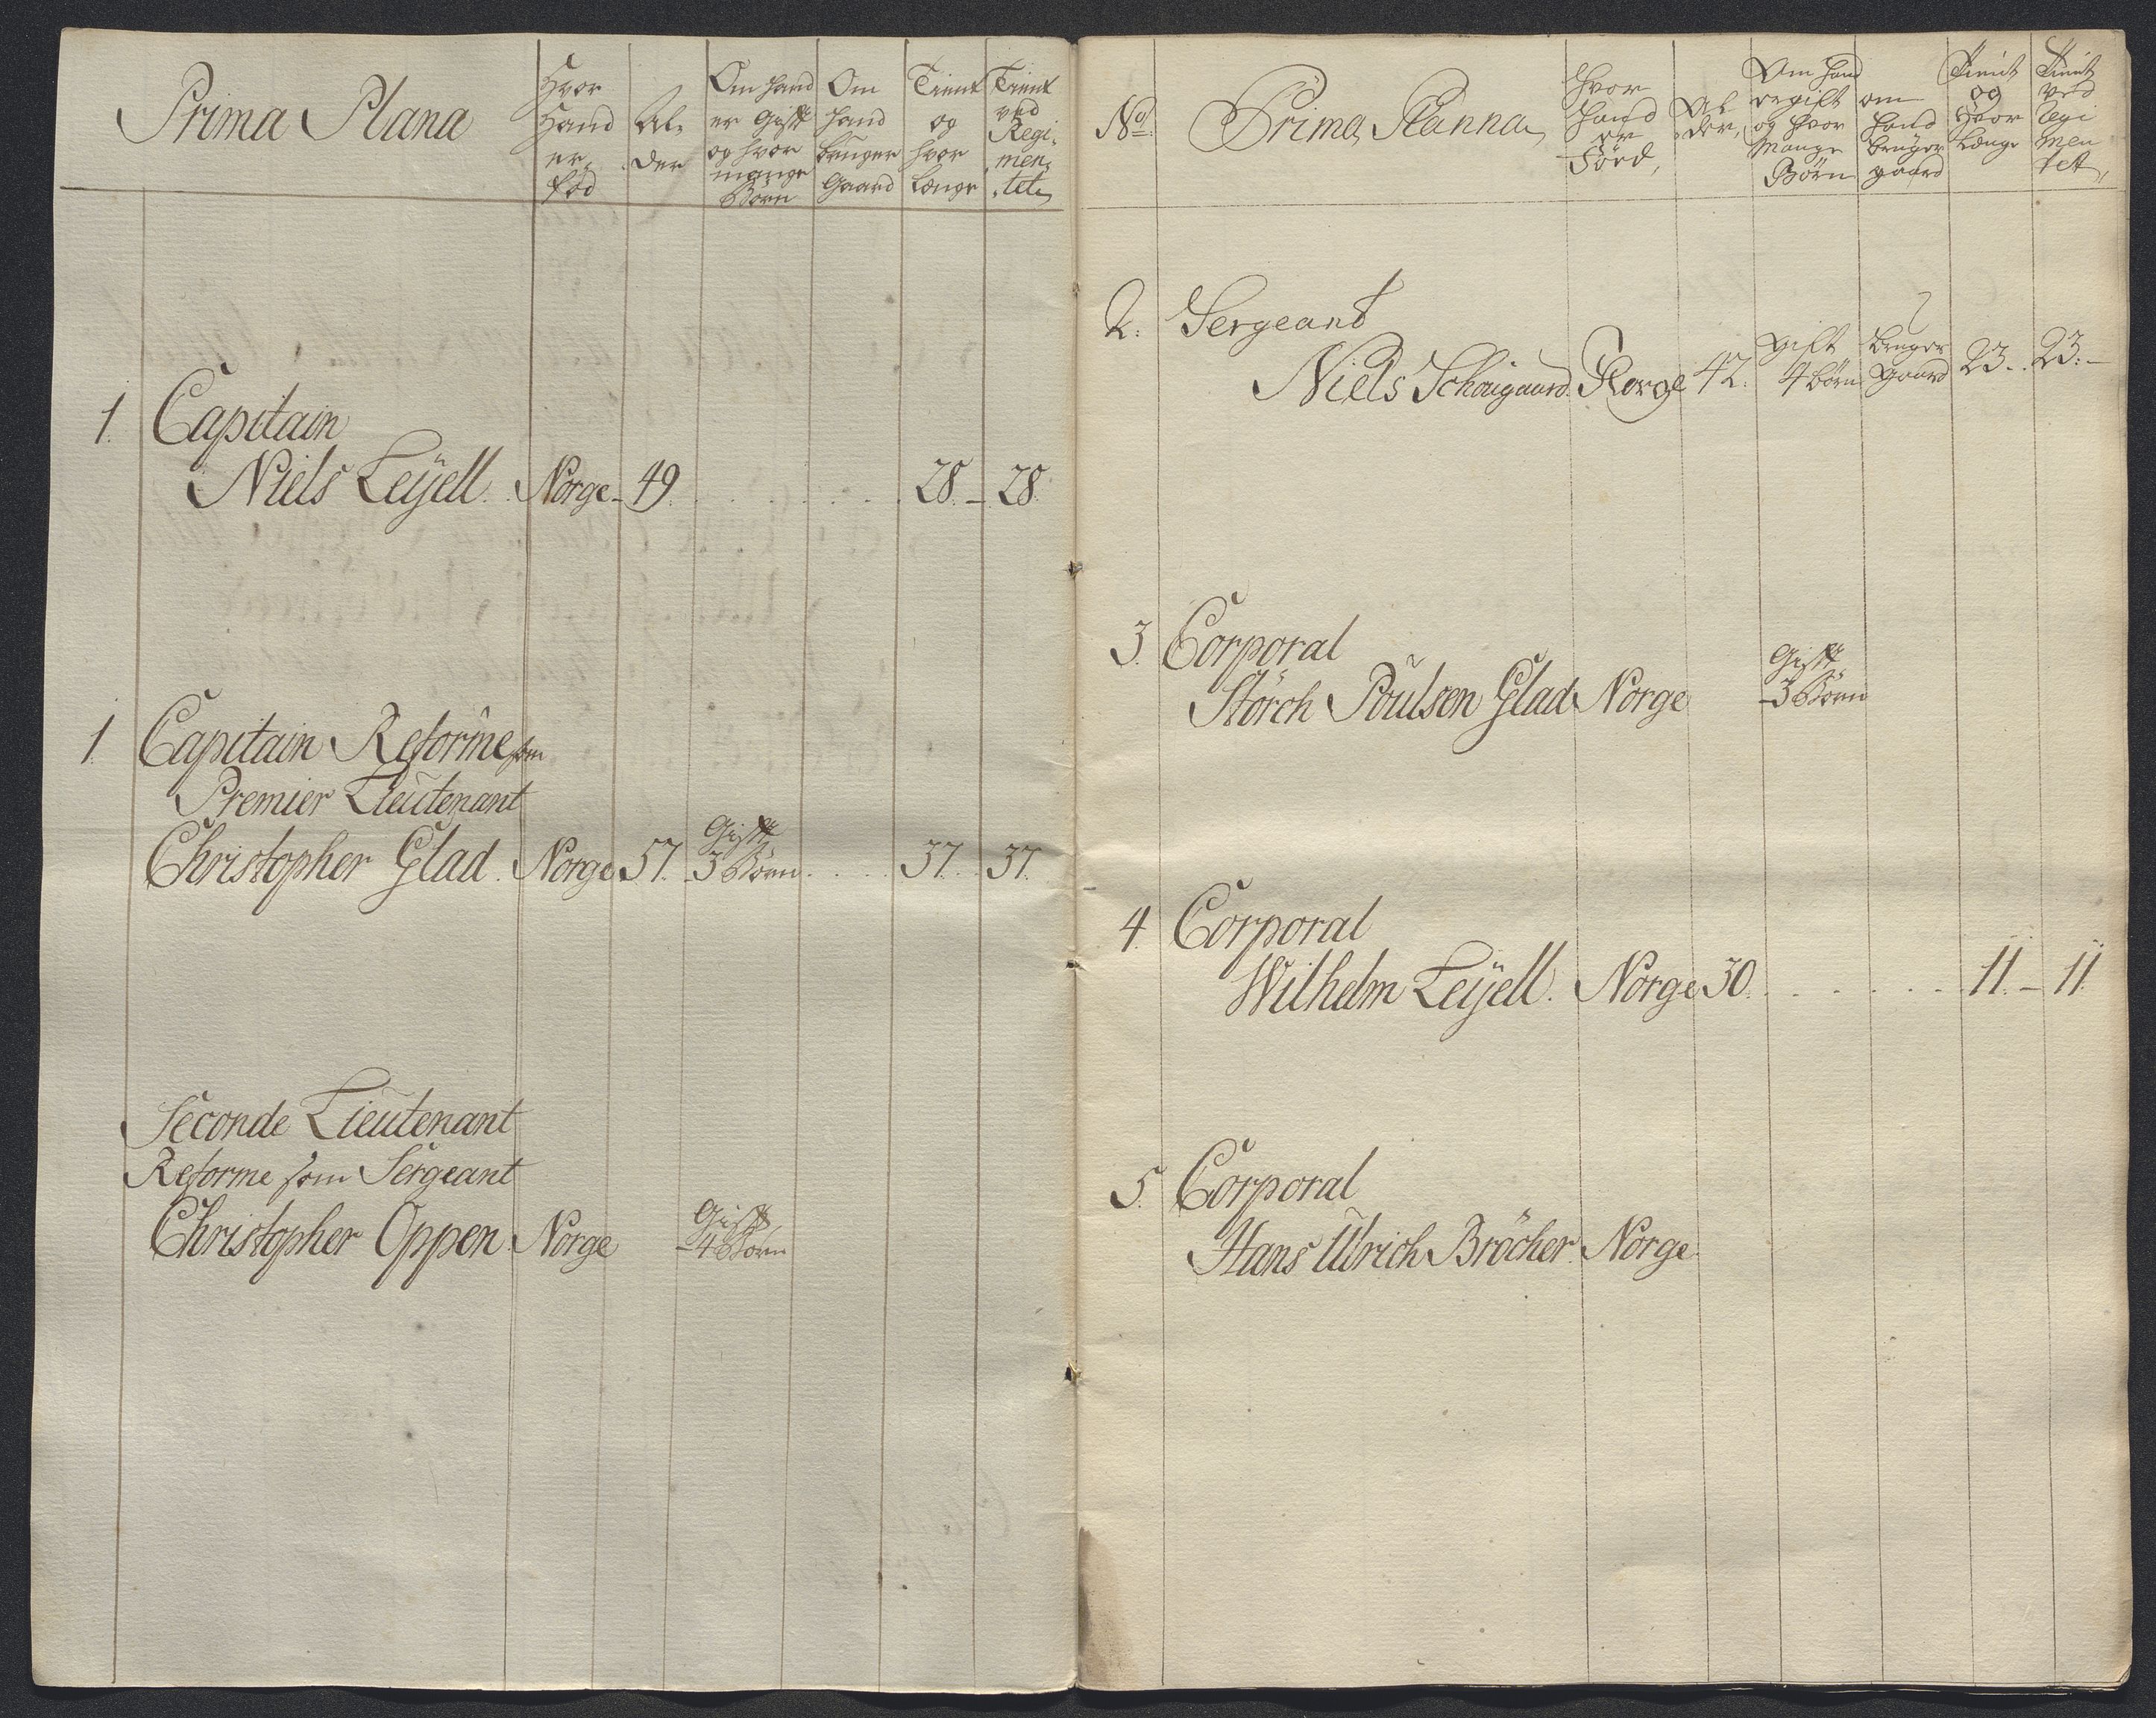 Prima Plana
Hvor
Hand
er
fød
Al,
der
Om hand
er Gifft
og hvor
mange
Børn
Om
hand
bruger
Gaard
Tient
og
hvor
Længe
Tient
ved
Regi,
men,
tet
1. Capitain
Niels Leÿell. Norge 49. 28. 28.
1. Capitain Reformé som
Premier Lieutenant
Christopher Glad. Norge 57. Gifft 3 Børn 37. 37.
Seconde Lieutenant
Reforme som Sergeant
Christopher Oppen. Norge Gifft 4 Børn
No. Prima Planna
Hvor
Hand
er
Førd,
Al
der,
Om Hand
er gift
og Hvor
Mange
Børn
om
Hand
bruger
gaard
Tient
og
Hvor
Længe
Tient
ved
Regi
men
tet,
2. Sergeant
Niels Schøigaard. Norge 42. gift 4 børn bruger gaard 23. 23.
3. Corporal
Störch Poulsen Glad Norge Gifft 3 Børn
4. Corporal
Wilhelm Leÿell. Norge 30. 11. 11.
5. Corporal
Hans Ulrich Bröcher. Norge